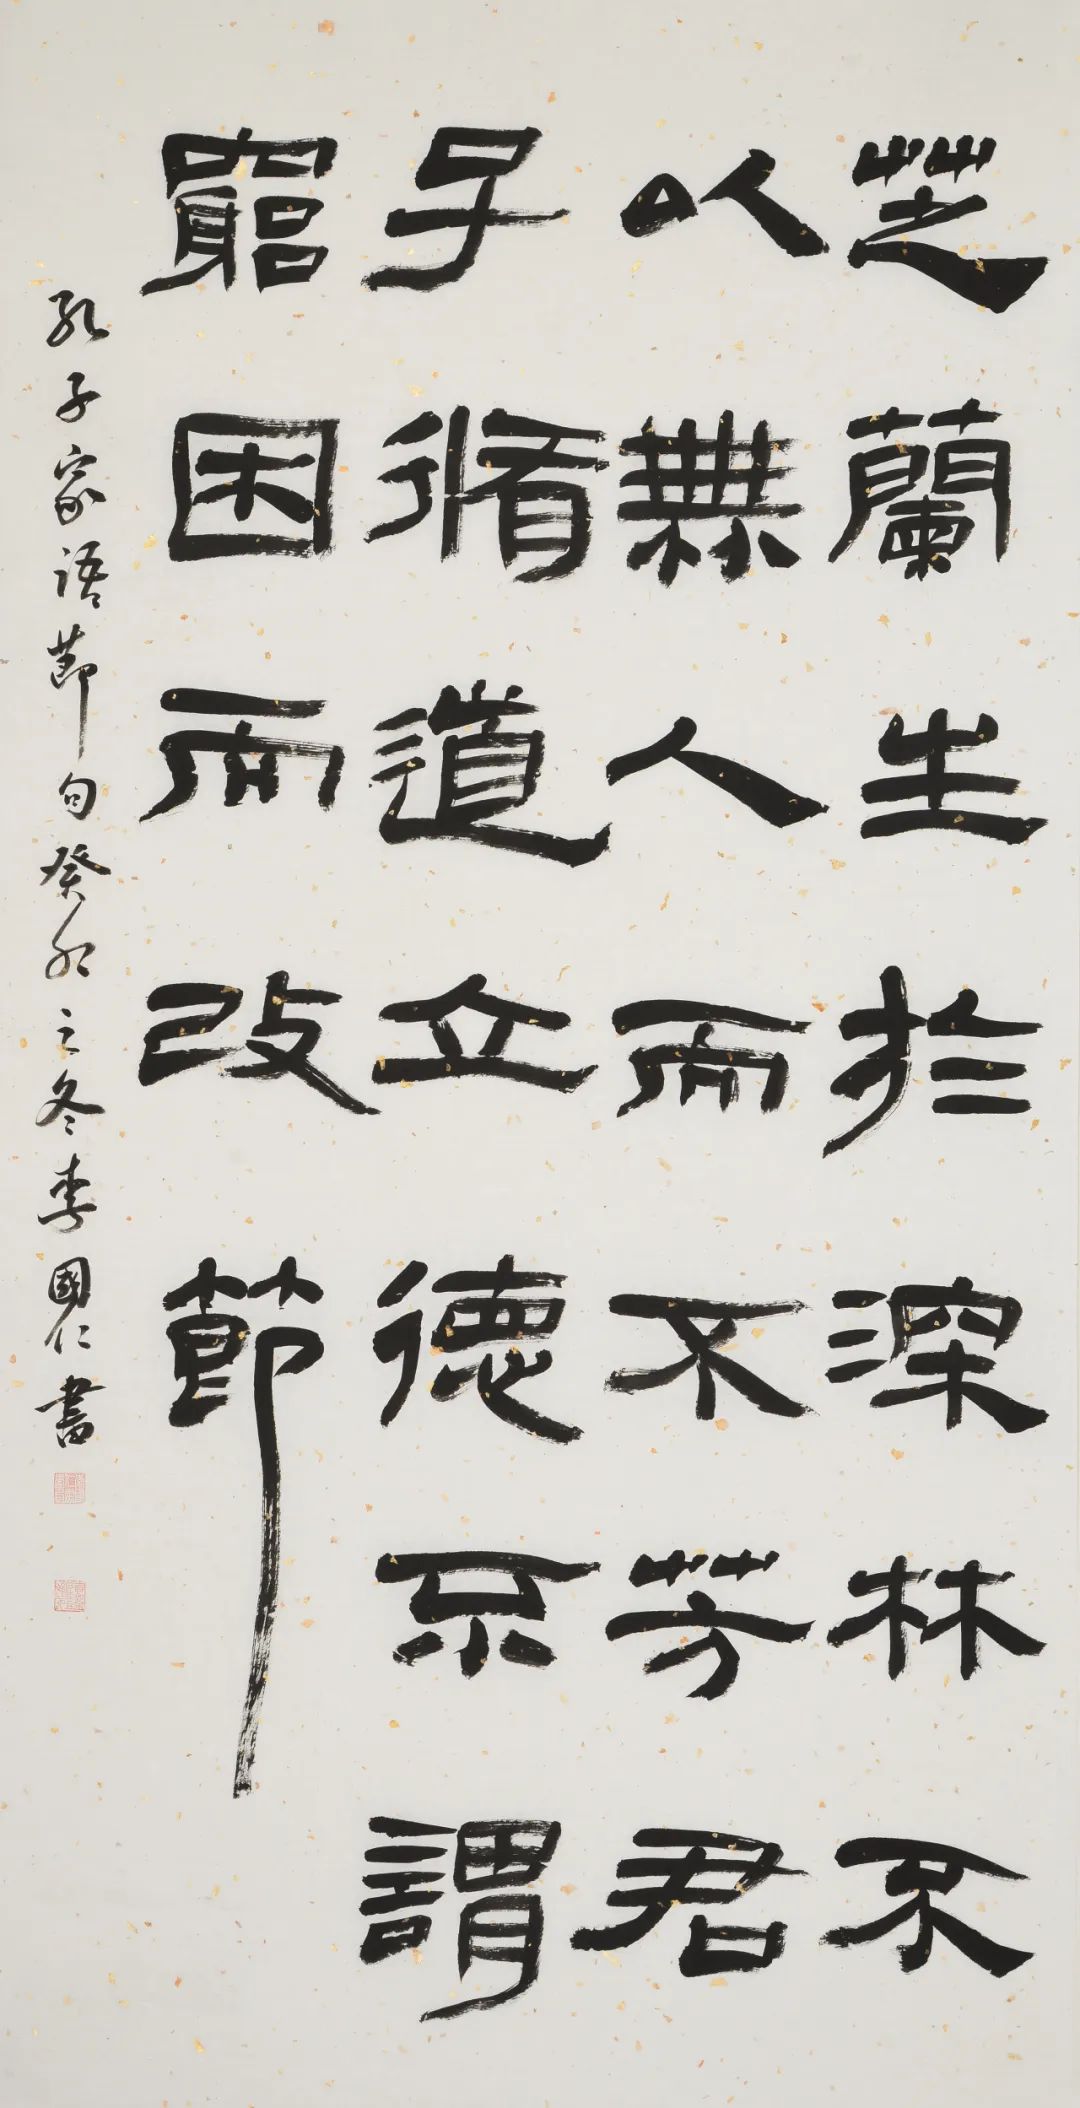 芝蘭生於深林不
以無人而不芳君
子脩道立德不謂
竆困而改節
孔子家語節句癸卯之冬李國仁書